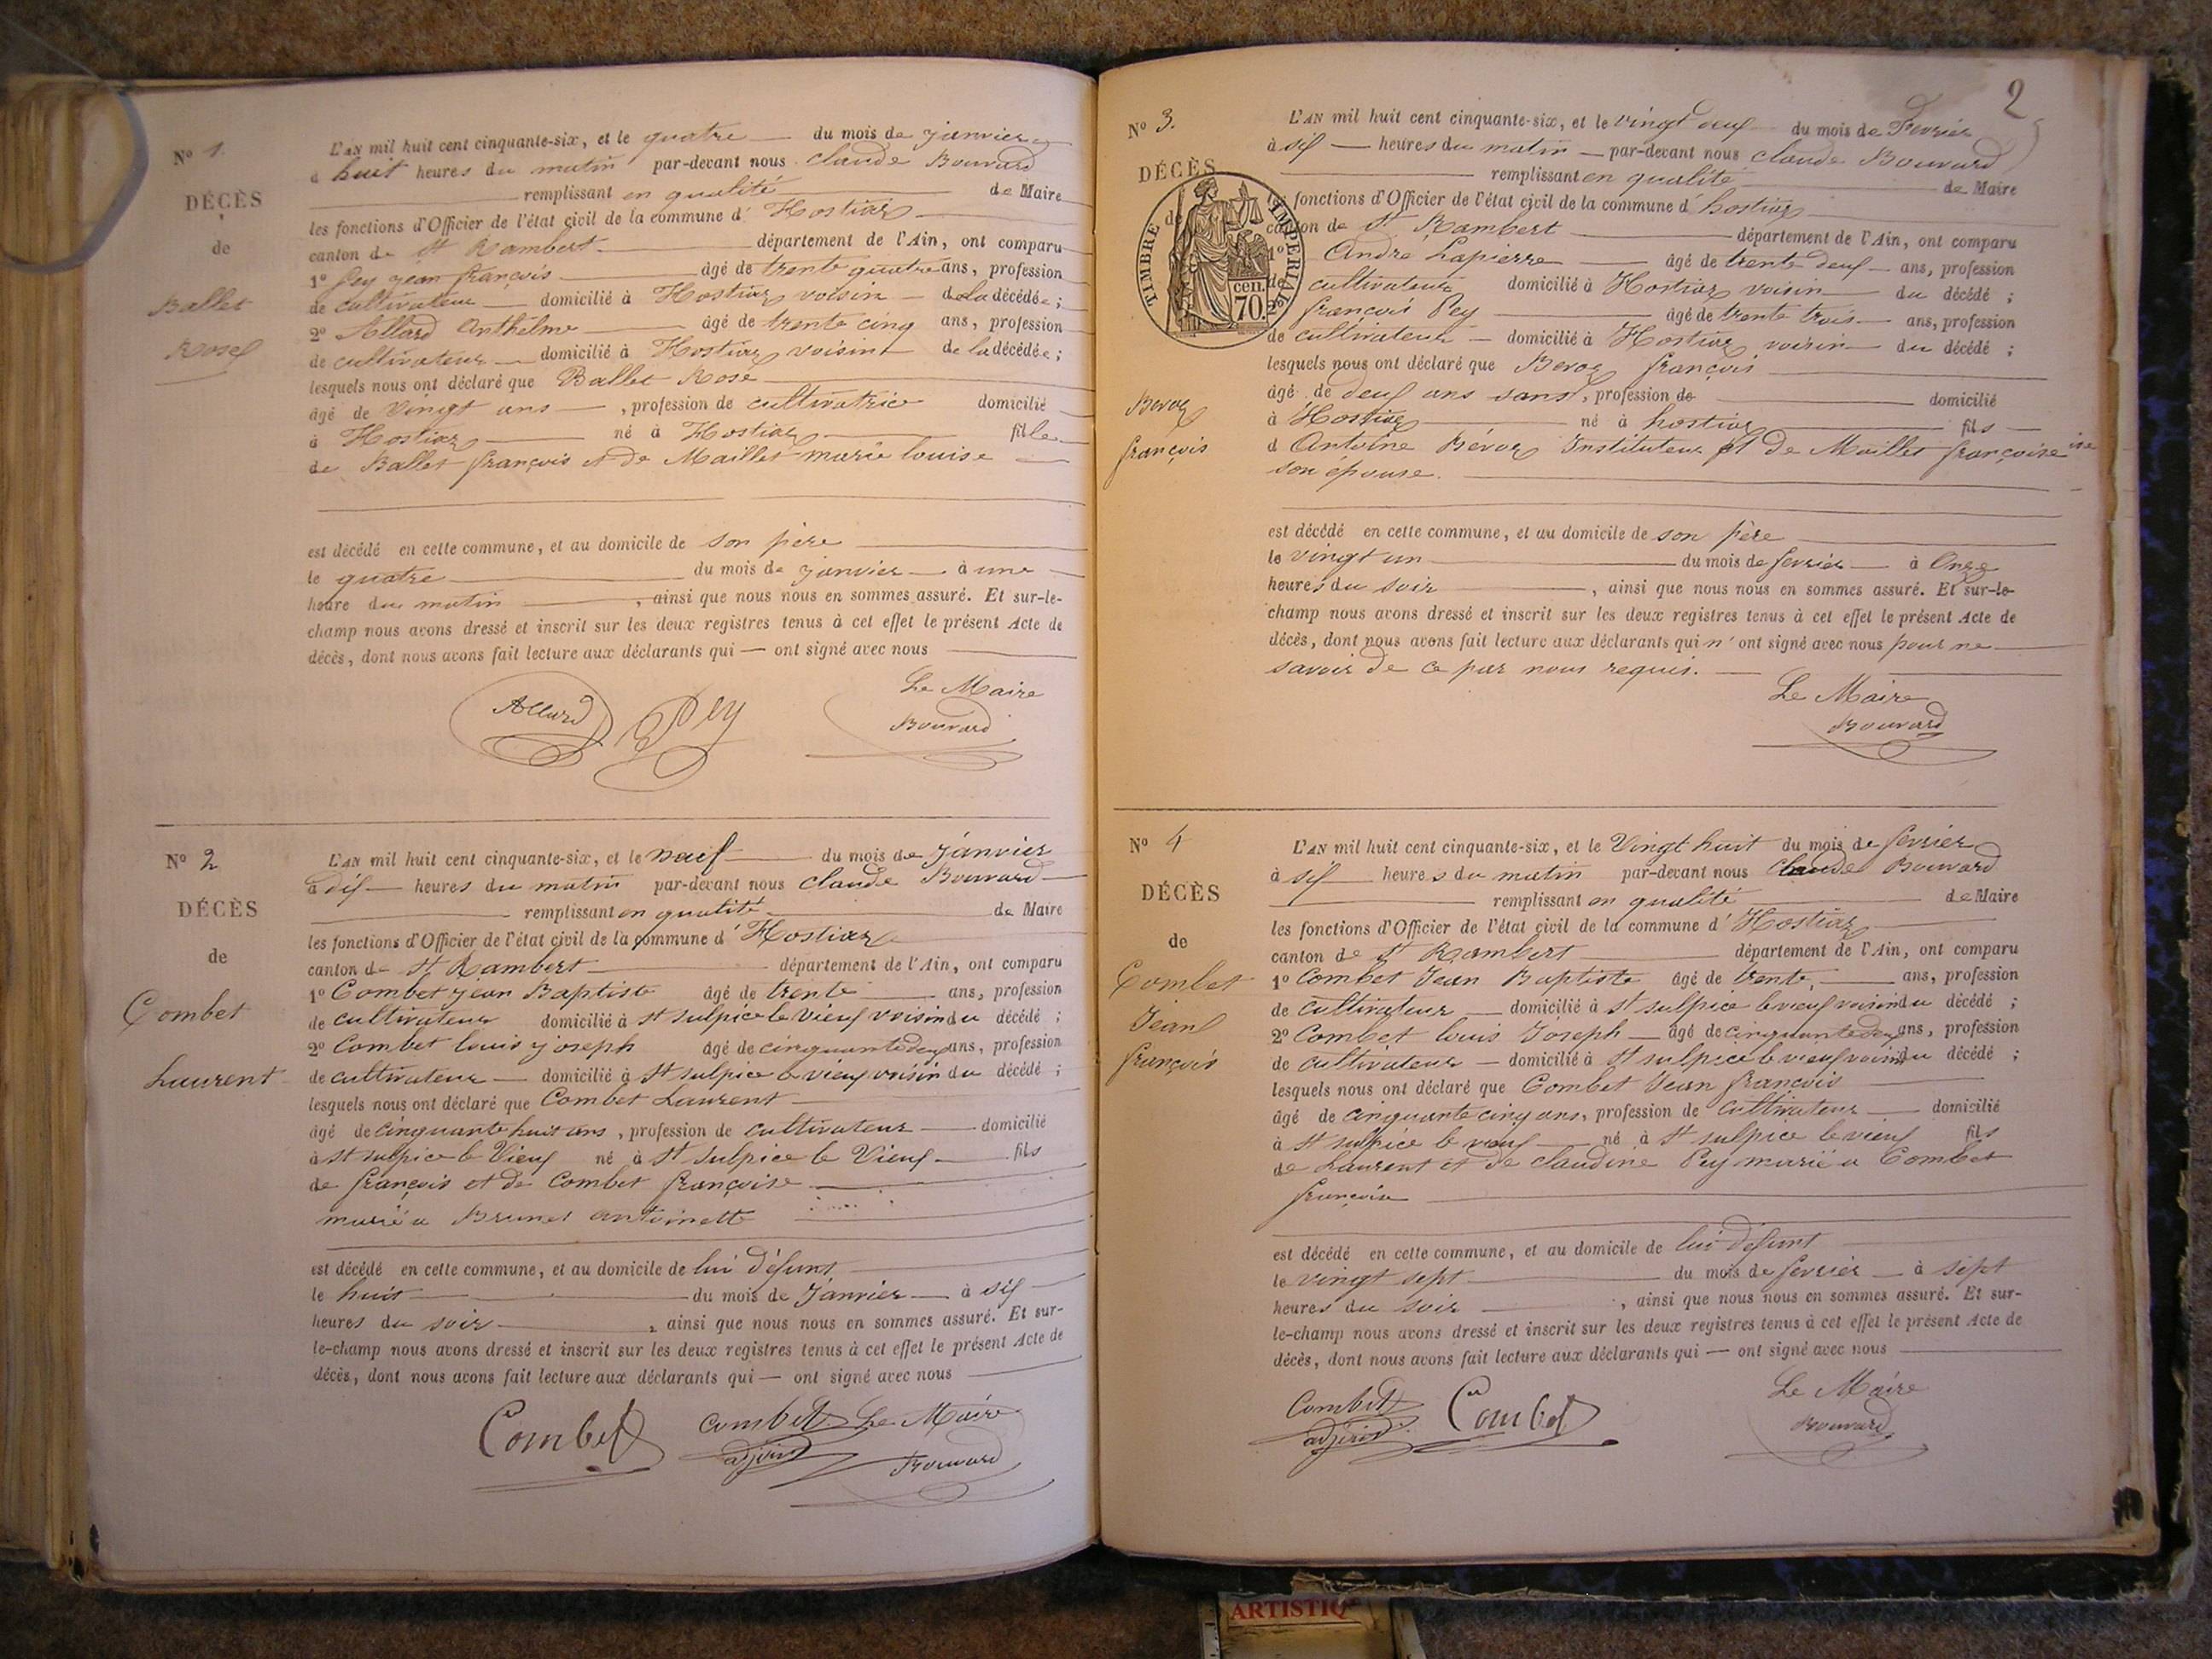 Nº 1.
DÉCÈS
de
Ballet
Rose
L'AN mil huit cent cinquante-six, et le quatre du mois de janvier
à huit heures du matin par-devant nous Claude Bouvard
remplissant en qualité de Maire
les fonctions d'Officier de l'état civil de la commune d' Hostiaz
canton de St Rambert département de l'Ain, ont comparu
1º Pey jean françois âgé de trente quatre ans, profession
de cultivateur domicilié à Hostiaz voisin de la décédée;
2º Allard Anthelme âgé de trente cinq ans, profession
de cultivateur domicilié à Hostiaz voisin de la décédée;
lesquels nous ont déclaré que Ballet Rose
âgé de vingt ans, profession de cultivatrice domicilié
à Hostiaz né à Hostiaz fille
de Ballet françois et de Maillet marie louise
est décédé en cette commune, et au domicile de son père
le quatre du mois de janvier à une
heure du matin, ainsi que nous nous en sommes assuré. Et sur-le-
champ nous avons dressé et inscrit sur les deux registres tenus à cet effet le présent Acte de
décès, dont nous avons fait lecture aux déclarants qui — ont signé avec nous
Le Maire
Allard Pey Bouvard
Nº 2
DÉCÈS
de
Combet
Laurent
L'AN mil huit cent cinquante-six, et le neuf du mois de Janvier
à dix heures du matin par-devant nous Claude Bouvard
remplissant en qualité de Maire
les fonctions d'Officier de l'état civil de la commune d' Hostiaz
canton de St Rambert département de l'Ain, ont comparu
1º Combet jean Baptiste âgé de trente ans, profession
de cultivateur domicilié à St Sulpice le Vieux voisin du décédé;
2º Combet louis joseph âgé de cinquante deux ans, profession
de cultivateur domicilié à St sulpice le vieux voisin du décédé;
lesquels nous ont déclaré que Combet Laurent
âgé de cinquante huit ans, profession de cultivateur domicilié
à St sulpice le Vieux né à St Sulpice le Vieux fils
de françois et de Combet françoise
marié a Brunet antoinette
est décédé en cette commune, et au domicile de lui défunt
le huit du mois de Janvier à six
heures du soir, ainsi que nous nous en sommes assuré. Et sur-
le-champ nous avons dressé et inscrit sur les deux registres tenus à cet effet le présent Acte de
décès, dont nous avons fait lecture aux déclarants qui — ont signé avec nous
Combet Combet Le Maire
adjoint Bouvard
2
Nº 3.
DÉCÈS
de
TIMBRE IMPERIAL
70 cen.
Bevoz
françois
L'AN mil huit cent cinquante-six, et le vingt deux du mois de Fevrier
à six heures du matin par-devant nous Claude Bouvard
remplissant en qualité de Maire
les fonctions d'Officier de l'état civil de la commune d' hostiaz
canton de St Rambert département de l'Ain, ont comparu
1º André Lapierre âgé de trente deux ans, profession
de cultivateur domicilié à Hostiaz voisin du décédé;
2º françois Pey âgé de trente trois ans, profession
de cultivateur domicilié à Hostiaz voisin du décédé;
lesquels nous ont déclaré que Bevoz françois
âgé de deux ans sans, profession de domicilié
à Hostiaz né à hostiaz fils
d Antoine Bévoz Instituteur et de Maillet françoise
son epouse.
est décédé en cette commune, et au domicile de son père
le vingt un du mois de fevrier à Onze
heures du soir, ainsi que nous nous en sommes assuré. Et sur-le-
champ nous avons dressé et inscrit sur les deux registres tenus à cet effet le présent Acte de
décès, dont nous avons fait lecture aux déclarants qui n'ont signé avec nous pour ne
savoir de ce par nous requis.
Le Maire
Bouvard
Nº 4
DÉCÈS
de
Combet
Jean
françois
L'AN mil huit cent cinquante-six, et le Vingt huit du mois de fevrier
à six heures du matin par-devant nous Claude Bouvard
remplissant en qualité de Maire
les fonctions d'Officier de l'état civil de la commune d' Hostiaz
canton de St Rambert département de l'Ain, ont comparu
1º Combet Jean Baptiste âgé de trente, ans, profession
de cultivateur domicilié à St sulpice le vieux voisin du décédé;
2º Combet louis Joseph âgé de cinquante deux ans, profession
de cultivateur domicilié à St sulpice le vieux voisin du décédé;
lesquels nous ont déclaré que Combet Jean françois
âgé de cinquante cinq ans, profession de cultivateur domicilié
à St sulpice le vieux né à St sulpice le vieux fils
de Laurent et de claudine Pey marié a Combet
françoise
est décédé en cette commune, et au domicile de lui défunt
le vingt sept du mois de fevrier à sept
heures du soir, ainsi que nous nous en sommes assuré. Et sur-
le-champ nous avons dressé et inscrit sur les deux registres tenus à cet effet le présent Acte de
décès, dont nous avons fait lecture aux déclarants qui — ont signé avec nous
Le Maire
Combet Combet Bouvard
adjoint
ARTISTIQ